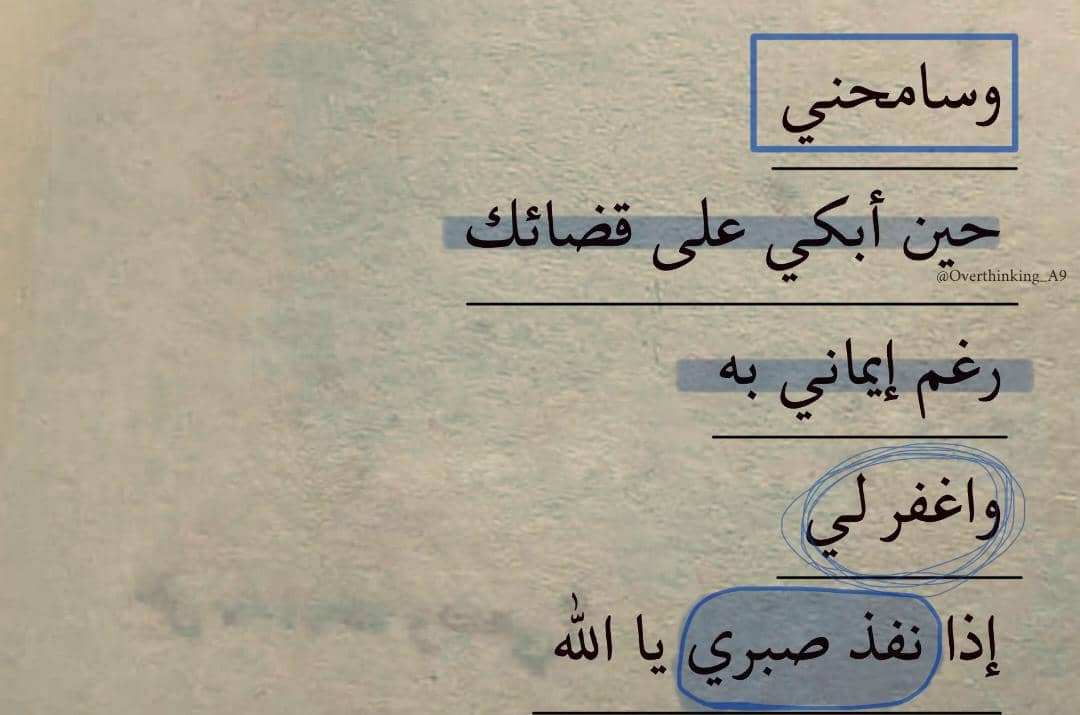 وسامحني
حين أبكي على قضائك
@Overthinking_A9
رغم إيماني به
واغفر لي
إذا نفذ صبري يا الله